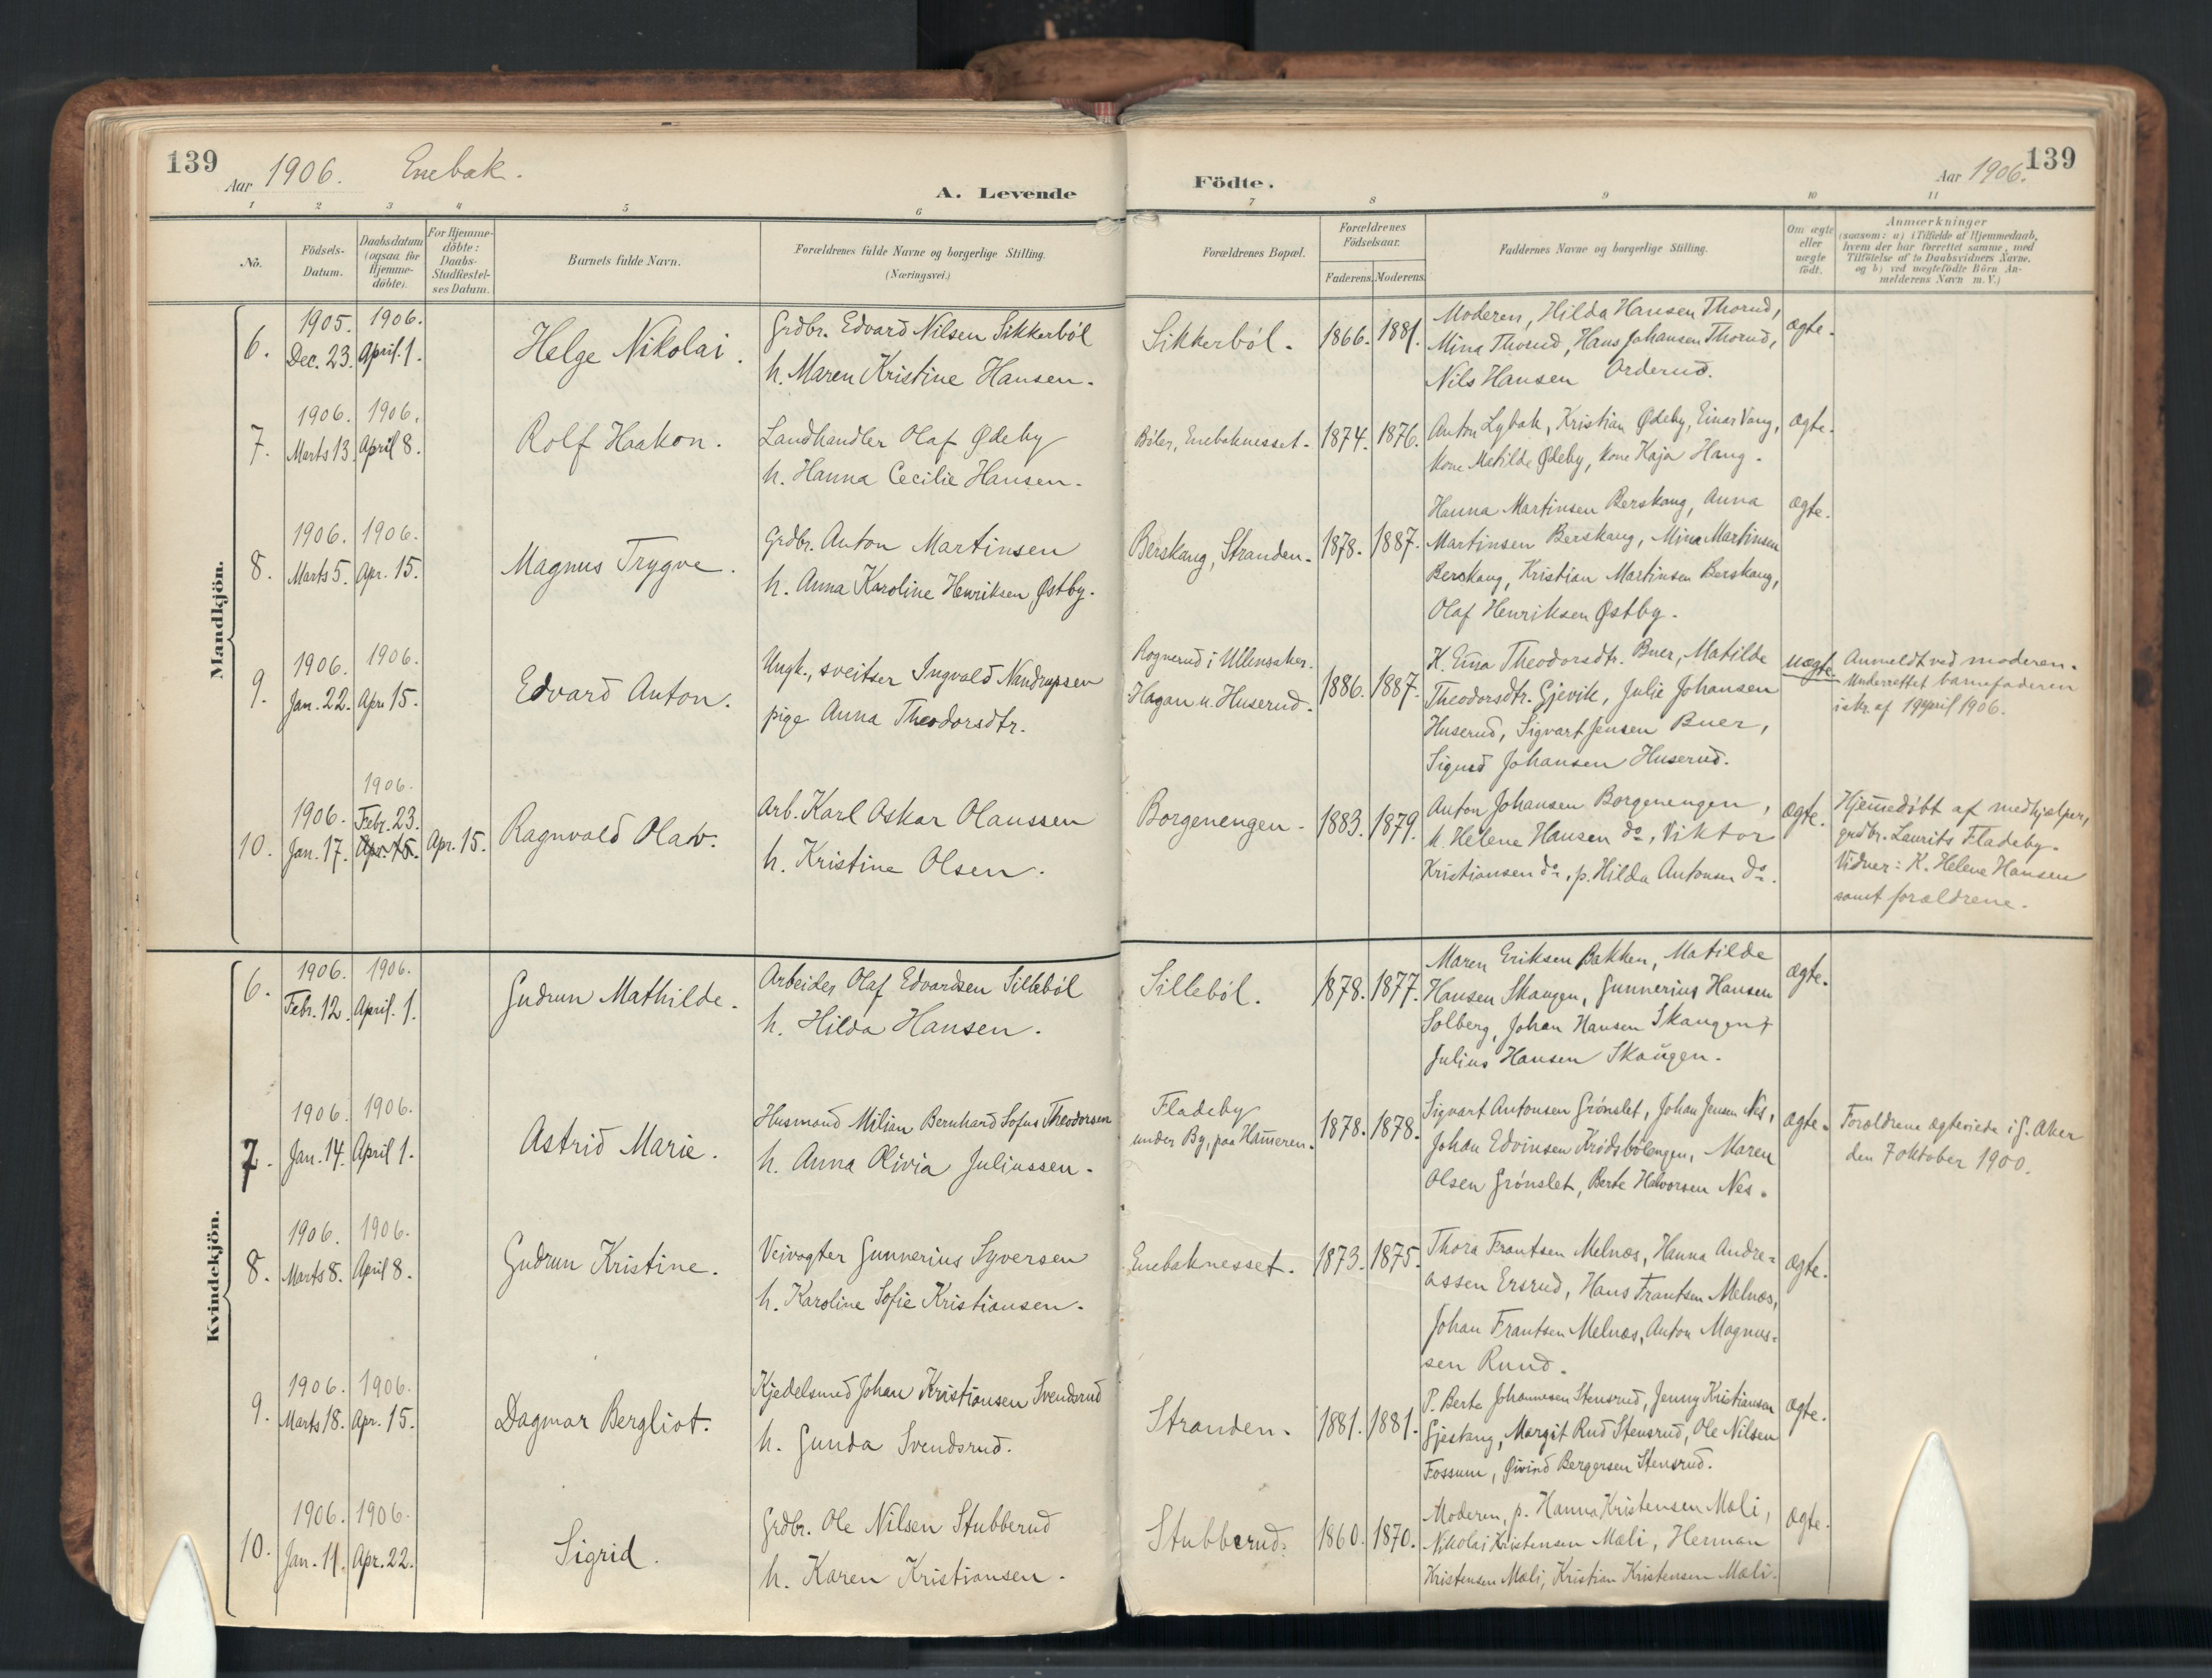 139
Aar 1906. Enebak.
A. Levende
1 2 3 4 5 6
No.
Födsels-
Datum.
Daabsdatum
(ogsaa for
Hjemme-
döbte).
For Hjemme-
döbte:
Daabs-
Stadfæstel-
ses Datum.
Barnets fulde Navn.
Forældrenes fulde Navne og borgerlige Stilling.
(Næringsvei.)
Mandkjön.
6.
1905.
Dec. 23.
1906.
April. 1.
Helge Nikolai.
Grdbr. Edvard Nilsen Sikkerböl
h. Maren Kristine Hansen.
7.
1906.
Marts 13.
1906.
April 8.
Rolf Haakon.
Landhandler Olaf Ødeby
h. Hanna Cecilie Hansen.
8.
1906.
Marts 5.
1906.
Apr. 15.
Magnus Trygve.
Grdbr. Anton Martinsen
h. Anna Karoline Henriksen Østby.
9.
1906.
Jan. 22.
1906.
Apr. 15.
Edvard Anton.
Ungk., sveitser Ingvald Nandrupsen
pige Anna Theodorsdtr.
10.
1906.
Jan. 17.
1906.
Febr. 23.
Apr. 15.
Apr. 15.
Ragnvald Olav.
Arb. Karl Oskar Olaussen
h. Kristine Olsen.
Kvindekjön.
6.
1906.
Febr. 12.
1906.
April. 1.
Gudrun Mathilde.
Arbeider Olaf Edvardsen Silleböl
h. Hilda Hansen.
7.
1906.
Jan. 14.
1906.
April 1.
Astrid Marie.
Husmand Milian Bernhard Sofus Theodorsen
h. Anna Olivia Juliussen.
8.
1906.
Marts 8.
1906.
April 8.
Gudrun Kristine.
Veivogter Gunnerius Syversen
h. Karoline Sofie Kristiansen.
9.
1906.
Marts 18.
1906.
Apr. 15.
Dagmar Bergliot.
Kjedelsmed Johan Kristiansen Svendsrud
h. Gunda Svendsrud.
10.
1906.
Jan. 11.
1906.
Apr. 22.
Sigrid.
Grdbr. Ole Nilsen Stubberud
h. Karen Kristiansen.
Födte.
Aar 1906.
139
7 8 9 10 11
Forældrenes Bopæl.
Forældrenes
Födselsaar.
Faderens. Moderens.
Faddernes Navne og borgerlige Stilling.
Om ægte
eller
uægte
födt.
Anmærkninger
(saasom: a) i Tilfælde af Hjemmedaab,
hvem der har forrettet samme, med
Tilföielse af to Daabsvidners Navne.
og b) ved uægtefödte Börn An-
melderens Navn m. V.)
Sikkerböl.
1866. 1881.
Moderen, Hilda Hansen Thorud,
Mina Thorud, Hans Johansen Thorud,
Nils Hansen Orderud.
ægte.
Böler, Enebaknesset.
1874. 1876.
Anton Lybak, Kristian Ødeby, Einar Vang,
kone Matilde Ødeby, kone Kaja Haug.
ægte.
Berskaug, Stranden.
1878. 1887.
Hanna Martinsen Berskaug, Anna
Martinsen Berskaug, Mina Martinsen
Berskaug, Kristian Martinsen Berskaug,
Olaf Henriksen Østby.
ægte.
Rognerud i Ullensaker.
Hagan u. Huserud.
1886. 1887.
K. Elina Theodorsdtr. Buer, Matilde
Theodorsdtr. Gjevik, Julie Johansen
Huserud, Sigvart Jensen Buer,
Sigurd Johansen Huserud.
uægte
Anmeldt ved moderen.
Underrettet barnefaderen
i skr. af 19 april 1906.
Borgenengen.
1883. 1879.
Anton Johansen Borgenengen,
k. Helene Hansen do, Viktor
Kristiansen do, p. Hilda Antonsen do.
ægte.
Hjemmedöbt af medhjælper,
grdbr. Laurits Fladeby.
Vidner: K. Helene Hansen
samt forældrene.
Silleböl.
1878. 1877.
Maren Eriksen Bakken, Matilde
Hansen Skaugen, Gunnerius Hansen
Solberg, Johan Hansen Skaugen,
Julius Hansen Skaugen.
ægte.
Fladeby
under By, paa Hammeren.
1878. 1878.
Sigvart Antonsen Grönslet, Johan Jensen Nes,
Johan Edvinsen Krödsbölengen, Maren
Olsen Grönslet, Berte Halvorsen Nes.
ægte.
Forældrene ægteviede i G. Aker
den 7 oktober 1900.
Enebaknesset.
1873. 1875.
Thora Frantsen Melnæs, Hanna Andre-
assen Ersrud, Hans Frantsen Melnæs,
Johan Frantsen Melnæs, Anton Magnus-
sen Rund.
ægte.
Stranden.
1881. 1881.
P. Berta Johannesen Stensrud, Jenny Kristiansen
Gjestang, Margit Rud Stensrud, Ole Nilsen
Fossum, Øivind Bergersen Stensrud.
ægte.
Stubberud.
1860. 1870.
Moderen, p. Hanna Kristensen Mali,
Nikolai Kristensen Mali, Herman
Kristensen Mali, Kristian Kristensen Mali.
ægte.